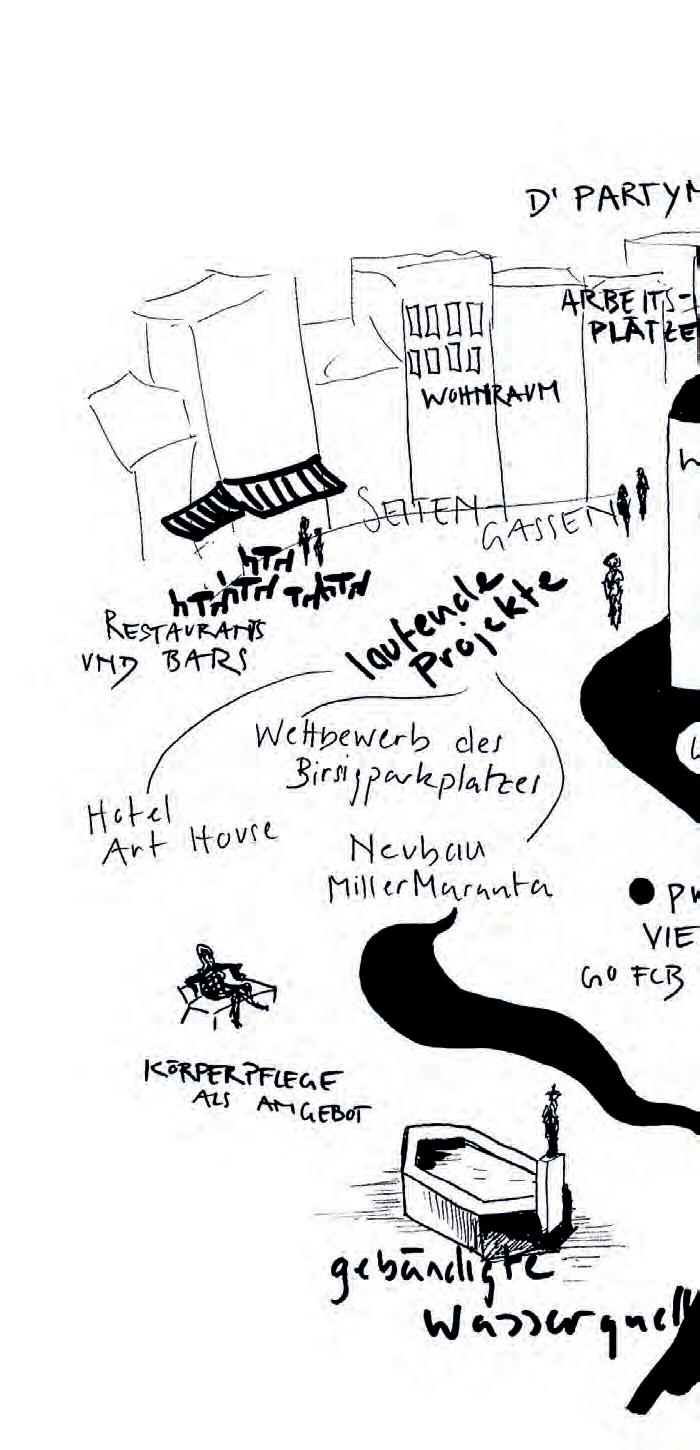 D' PARTYM
ARBEITS-
PLÄTZE
WOHNRAUM
SEITEN-
GASSEN
laufende
Projekte
RESTAURANTS
UND BARS
Wettbewerb des
Birsigparkplatzes
Hotel
Art House
Neubau
Miller Maranta
VIE
GO FCB
KÖRPERPFLEGE
ALS ANGEBOT
gebändigte
Wasserquell